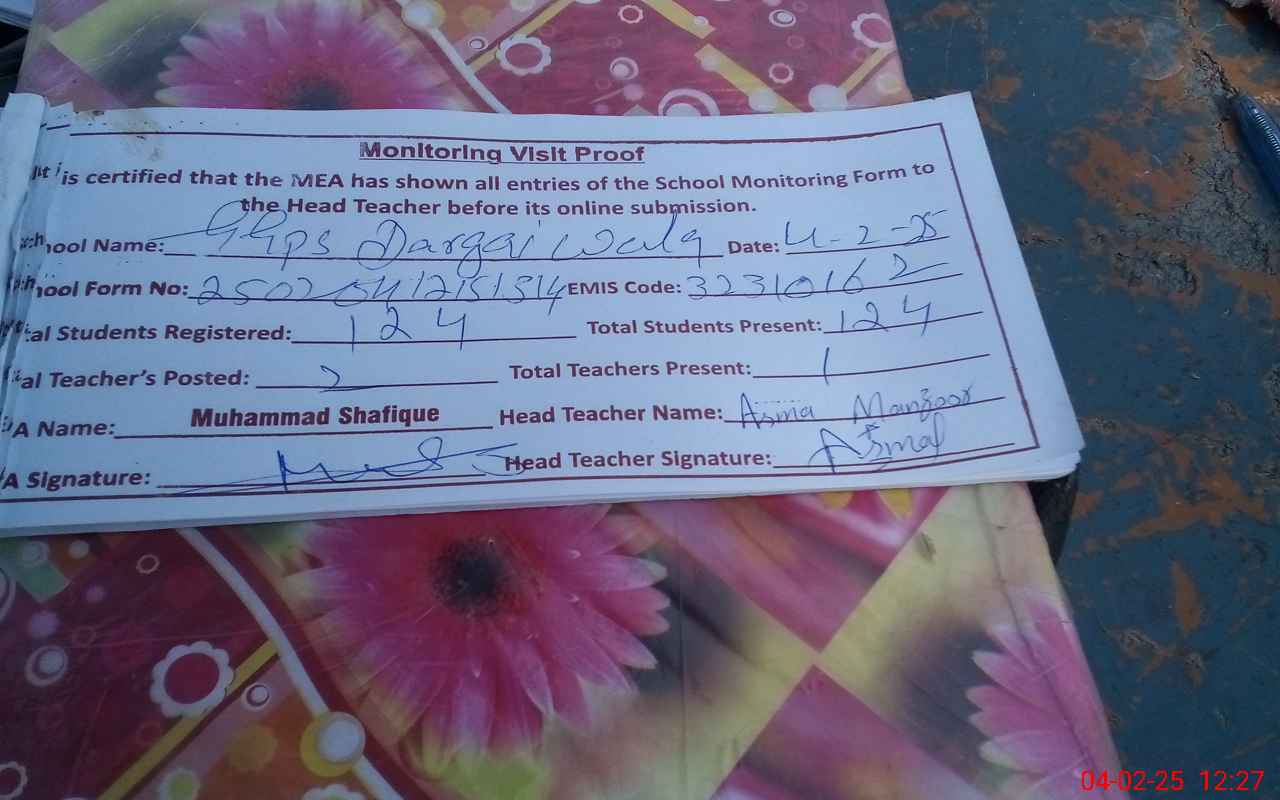 Monitoring Visit Proof
It is certified that the MEA has shown all entries of the School Monitoring Form to
the Head Teacher before its online submission.
hool Name: GGPS Dargai Wala Date: 4-2-25
hool Form No: 25020412151514 EMIS Code: 32310162
al Students Registered: 124 Total Students Present: 124
al Teacher's Posted: 2 Total Teachers Present: 1
A Name: Muhammad Shafique Head Teacher Name: Asma Manzoor
A Signature: Head Teacher Signature: Asma
04-02-25 12:27